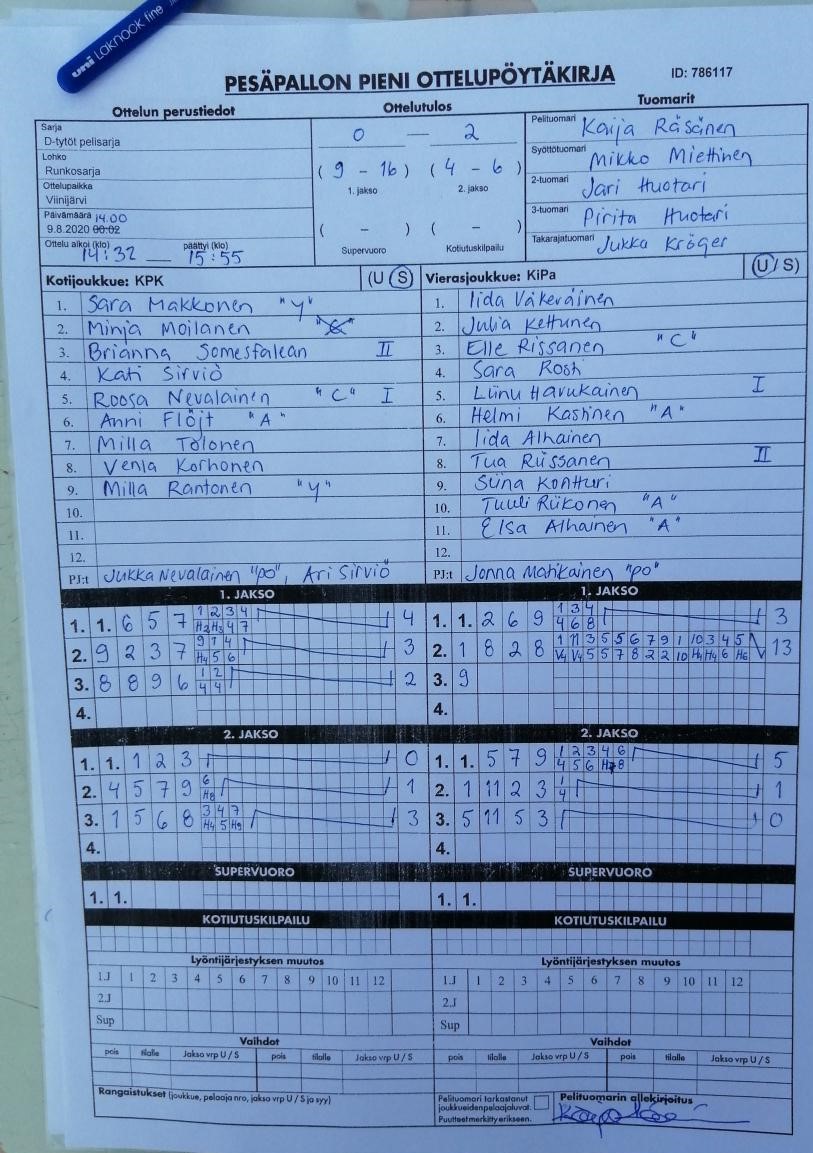 uni Laknock fine
PESÄPALLON PIENI OTTELUPÖYTÄKIRJA
ID: 786117
Ottelun perustiedot
Ottelutulos
Tuomarit
Sarja
D-tytöt pelisarja
Lohko
Runkosarja
Ottelupaikka
Viinijärvi
Päivämäärä 14.00
9.8.2020 00:02
Ottelu alkoi (klo) päättyi (klo)
14:32 — 15:55
0 — 2
( 9 - 16 ) ( 4 - 6 )
1. jakso 2. jakso
( - ) ( - )
Supervuoro Kotiutuskilpailu
Pelituomari Kaija Räsänen
Syöttötuomari Mikko Miettinen
2-tuomari Jari Huotari
3-tuomari Pirita Huotari
Takarajatuomari Jukka Kröger
Kotijoukkue: KPK (U / S)
1. Sara Makkonen "Y"
2. Minja Moilanen "C"
3. Brianna Somesfalean II
4. Kati Sirviö
5. Roosa Nevalainen "C" I
6. Anni Flöjt "A"
7. Milla Tolonen
8. Venla Korhonen
9. Milla Rantonen "Y"
10.
11.
12.
PJ:t Jukka Nevalainen "PO", Ari Sirviö
Vierasjoukkue: KiPa (U / S)
1. Iida Väkeväinen
2. Julia Kettunen
3. Elle Rissanen "C"
4. Sara Rosti
5. Liinu Havukainen I
6. Helmi Kastinen "A"
7. Iida Alhainen
8. Tua Riissanen II
9. Siina Kontturi
10. Tuuli Riikonen "A"
11. Elsa Alhainen "A"
12.
PJ:t Jonna Matikainen "PO"
1. JAKSO
1. 1. 6 5 7 1 2 3 4 4
H2 H3 4 7
2. 9 2 3 7 9 1 4 3
H4 5 6
3. 8 8 9 6 1 2 2
4 4
4.
1. JAKSO
1. 1. 2 6 9 1 3 4 3
4 6 8
2. 1 8 2 8 1 11 3 5 5 6 7 9 1 10 3 4 5 13
V4 V4 5 5 7 8 2 2 10 H4 H4 6 H6
3. 9
4.
2. JAKSO
1. 1. 1 2 3 0
2. 4 5 7 9 6 1
H8
3. 1 5 6 8 3 4 7 3
H4 5 H9
4.
2. JAKSO
1. 1. 5 7 9 1 2 3 4 6 5
4 5 6 H7 8
2. 1 11 2 3 1 1
4
3. 5 11 5 3 0
4.
SUPERVUORO
1. 1.
SUPERVUORO
1. 1.
KOTIUTUSKILPAILU
KOTIUTUSKILPAILU
Lyöntijärjestyksen muutos
1.J 1 2 3 4 5 6 7 8 9 10 11 12
2.J
Sup
Lyöntijärjestyksen muutos
1.J 1 2 3 4 5 6 7 8 9 10 11 12
2.J
Sup
Vaihdot
pois tilalle Jakso vrp U / S pois tilalle Jakso vrp U / S
Vaihdot
pois tilalle Jakso vrp U / S pois tilalle Jakso vrp U / S
Rangaistukset (joukkue, pelaaja nro, jakso vrp U / S ja syy)
Pelituomari tarkastanut
joukkueiden pelaajaluvat.
Puutteet merkitty erikseen.
Pelituomarin allekirjoitus